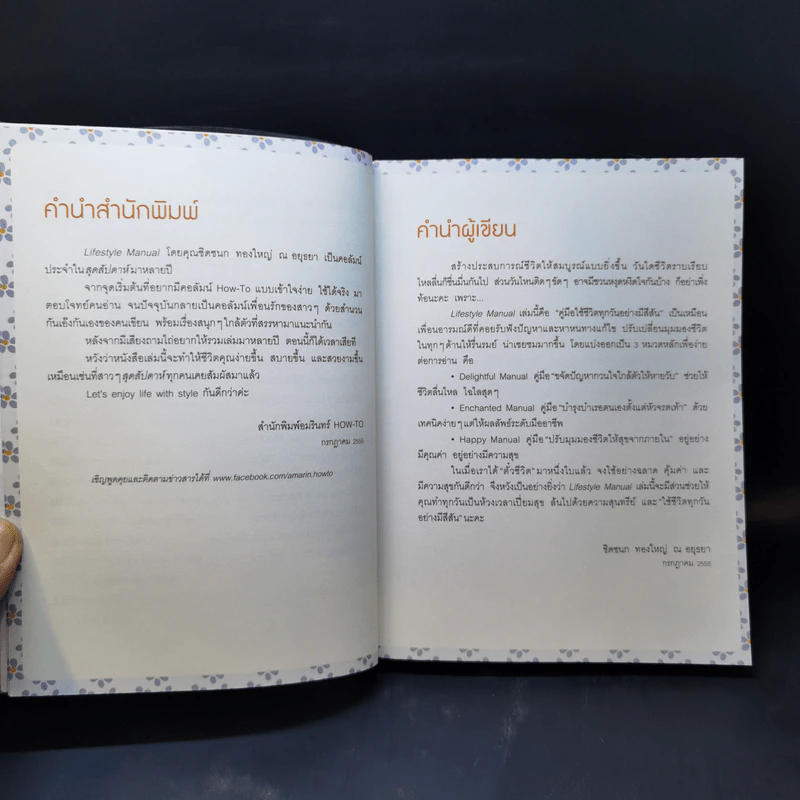 คำนำสำนักพิมพ์
Lifestyle Manual โดยคุณชิดชนก ทองใหญ่ ณ อยุธยา เป็นคอลัมน์
ประจำในสุดสัปดาห์มาหลายปี
จากจุดเริ่มต้นที่อยากมีคอลัมน์ How-To แบบเข้าใจง่าย ใช้ได้จริง มา
ตอบโจทย์คนอ่าน จนปัจจุบันกลายเป็นคอลัมน์เพื่อนรักของสาวๆ ด้วยสำนวน
กันเองกันเองของคนเขียน พร้อมเรื่องสนุกๆ ใกล้ตัวที่สรรหามาแนะนำกัน
หลังจากมีเสียงถามไถ่อยากให้รวมเล่มมาหลายปี ตอนนี้ก็ได้เวลาเสียที
หวังว่าหนังสือเล่มนี้จะทำให้ชีวิตคุณง่ายขึ้น สบายขึ้น และสวยงามขึ้น
เหมือนเช่นที่สาวๆ สุดสัปดาห์ทุกคนเคยสัมผัสมาแล้ว
Let's enjoy life with style กันดีกว่าค่ะ
สำนักพิมพ์อมรินทร์ HOW-TO
กรกฎาคม 2555
เชิญพูดคุยและติดตามข่าวสารได้ที่ www.facebook.com/amarin.howto
คำนำผู้เขียน
สร้างประสบการณ์ชีวิตให้สมบูรณ์แบบยิ่งขึ้น วันใดชีวิตราบเรียบ
ไหลลื่นก็ชื่นมื่นกันไป ส่วนวันไหนติดๆ ขัดๆ อาจมีชวนหงุดหงิดใจกันบ้าง ก็อย่าเพิ่ง
ท้อนะคะ เพราะ...
Lifestyle Manual เล่มนี้คือ "คู่มือใช้ชีวิตทุกวันอย่างมีสีสัน" เป็นเหมือน
เพื่อนอารมณ์ดีที่คอยรับฟังปัญหาและหาหนทางแก้ไข ปรับเปลี่ยนมุมมองชีวิต
ในทุกๆ ด้านให้รื่นรมย์ น่าเชยชมมากขึ้น โดยแบ่งออกเป็น 3 หมวดหลักเพื่อง่าย
ต่อการอ่าน คือ
• Delightful Manual คู่มือ "ขจัดปัญหากวนใจใกล้ตัวให้หายวับ" ช่วยให้
ชีวิตลื่นไหล ไฉไลสุดๆ
• Enchanted Manual คู่มือ "บำรุงบำเรอตนเองตั้งแต่หัวจรดเท้า" ด้วย
เทคนิคง่ายๆ แต่ให้ผลลัพธ์ระดับมืออาชีพ
• Happy Manual คู่มือ "ปรับมุมมองชีวิตให้สุขจากภายใน" อยู่อย่าง
มีคุณค่า อยู่อย่างมีความสุข
ในเมื่อเราได้ "ตั๋วชีวิต" มาหนึ่งใบแล้ว จงใช้อย่างฉลาด คุ้มค่า และ
มีความสุขกันดีกว่า จึงหวังเป็นอย่างยิ่งว่า Lifestyle Manual เล่มนี้จะมีส่วนช่วยให้
คุณทำทุกวันเป็นห้วงเวลาเปี่ยมสุข ล้นไปด้วยความสุนทรีย์ และ "ใช้ชีวิตทุกวัน
อย่างมีสีสัน" นะคะ
ชิดชนก ทองใหญ่ ณ อยุธยา
กรกฎาคม 2555